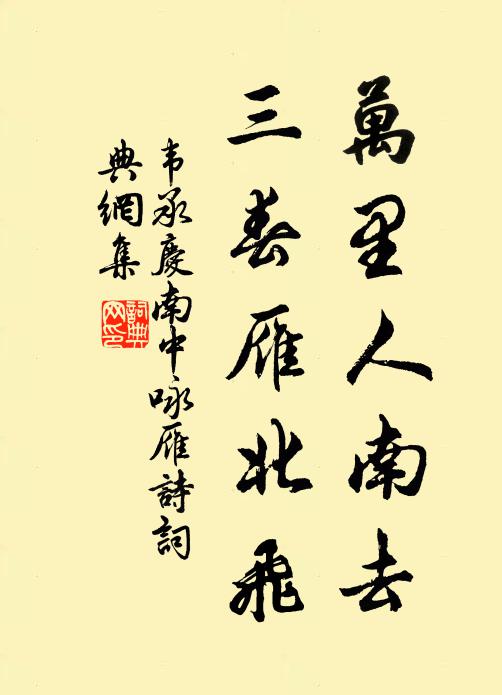 萬里人南去
三春雁北飛
韦承慶南中咏雁詩詞
典網集
詞典
网印